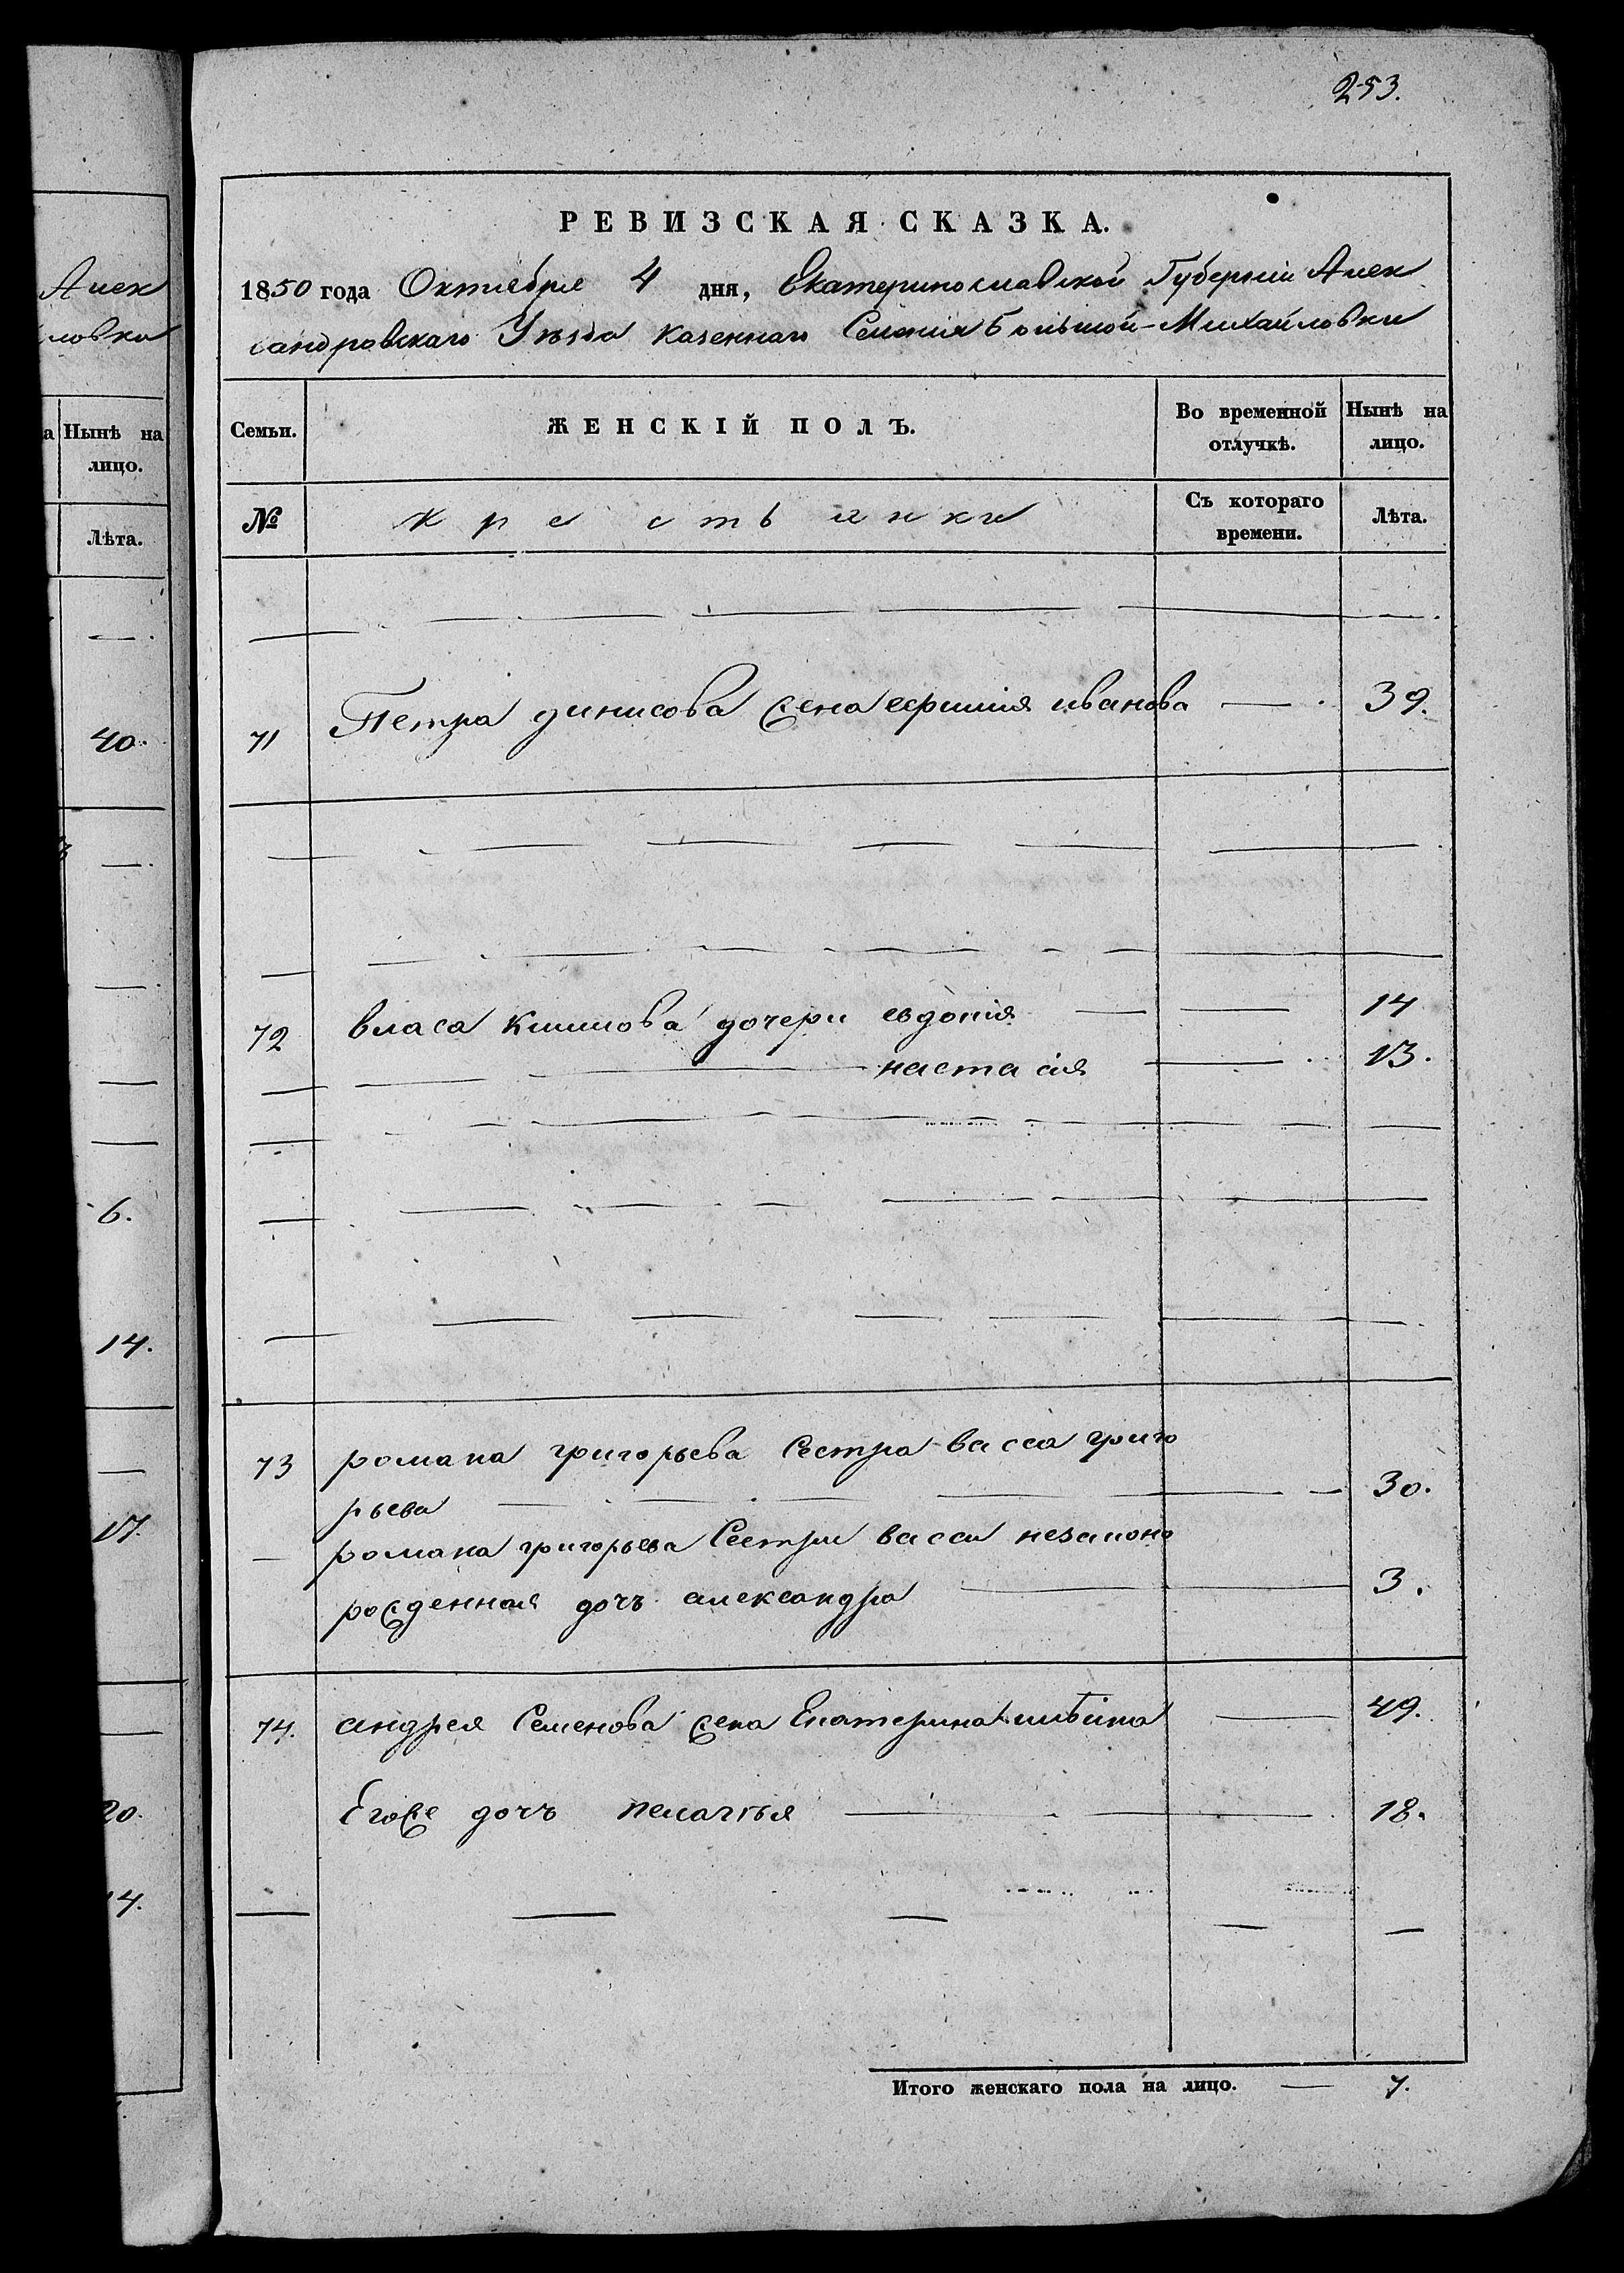 253.
Алек
ловки
а
Нынѣ на
лицо.
Лѣта.
40.
6.
14.
17.
20.
14.
РЕВИЗСКАЯ СКАЗКА.
1850 года Октября 4 дня, Екатеринославской Губерніи Алек
сандровскаго Уѣзда казеннаго Селенія Большой-Михайловки
Семьи.
ЖЕНСКІЙ ПОЛЪ.
Во временной
отлучкѣ.
Нынѣ на
лицо.
№
крестьянки
Съ котораго
времени.
Лѣта.
71 Петра динисова жена ефимія иванова — 39.
72 власа климова дочери евдокія — 14
— настасія — 13.
73 романа григорьева Сестра васса григо
рьева — 30.
романа григорьева Сестры вассы незаконо
рожденная дочъ александра — 3.
74. андрея Семенова жена Екатерина — 49.
Егоже дочъ пелагія — 18.
Итого женскаго пола на лицо. — 7.